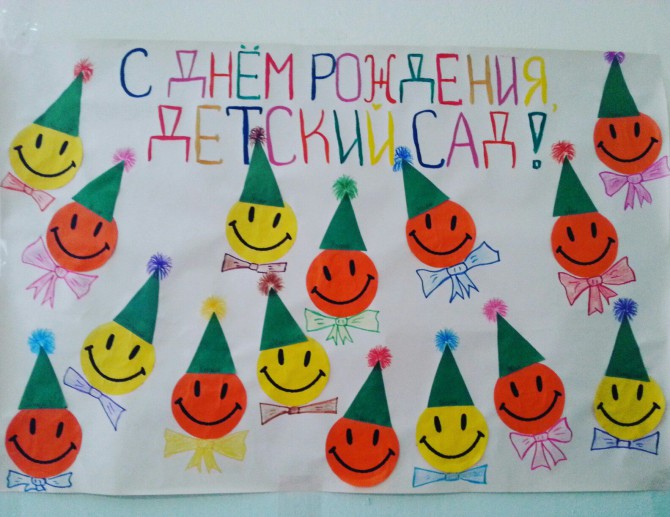 С ДНЁМ РОЖДЕНИЯ,
ДЕТСКИЙ САД!